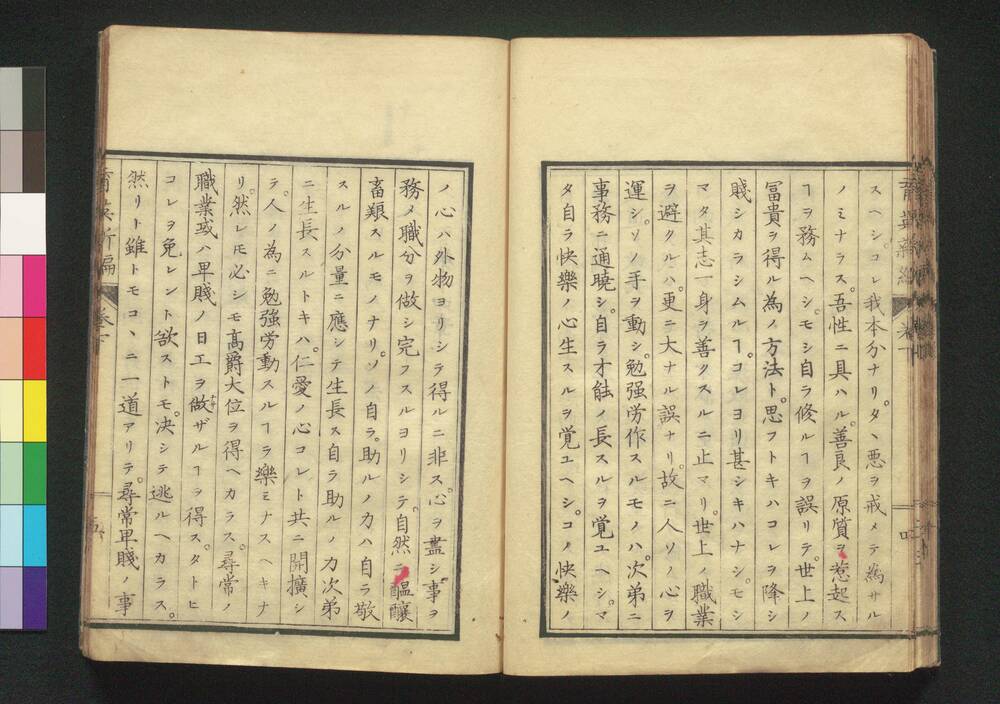 スヘシ。コレ我本分ナリ。タヽ悪ヲ戒メテ為サル
ノミナラス。吾性ニ具ハル。善良ノ原質ヲ惹起ス
ヿヲ務ムヘシ。モシ自ラ修ルヿヲ誤リテ。世上ノ
冨貴ヲ得ル為ノ方法ト。思フトキハコレヲ降シ
賤シカラシムルヿ。コレヨリ甚シキハナシ。モシ
マタ其志一身ヲ善クスルニ止マリ。世上ノ職業
ヲ避クルハ。更ニ大ナル誤ナリ。故ニ人ソノ心ヲ
運シ。ソノ手ヲ動シ。勉強労作スルモノハ。次弟ニ
事務ニ通曉シ。自ラオ能ノ長スルヲ覚ユヘシ。マ
タ自ラ快樂ノ心生スルヲ覚ユヘシ。コノ快樂ノ
ノ心ハ外物ヨリシテ得ルニ非ス。心ヲ盡シ事ヲ
務メ職分ヲ做シ完フスルヨリシテ。自然ニ醞釀
畜艱スルモノナリ。ソノ自ラ助ルノカハ自ラ敬
スルノ分量ニ應シテ生長ス自ラ助ルノ力次弟
ニ生長スルトキハ。仁愛ノ心コレト共ニ開擴シ
テ。人ノ為ニ勉強労動スルヿヲ樂ミナスヘキナ
リ。然レモ必シモ高爵大位ヲ得ヘカラス。尋常ノ
職業或ハ卑賤ノ日工ヲ做ザルヿヲ得ス。タトヒ
コレヲ免レント欲ストモ。决シテ逃ルヘカラス。
然リト雖トモコヽニ一道アリテ。尋常卑賤ノ事